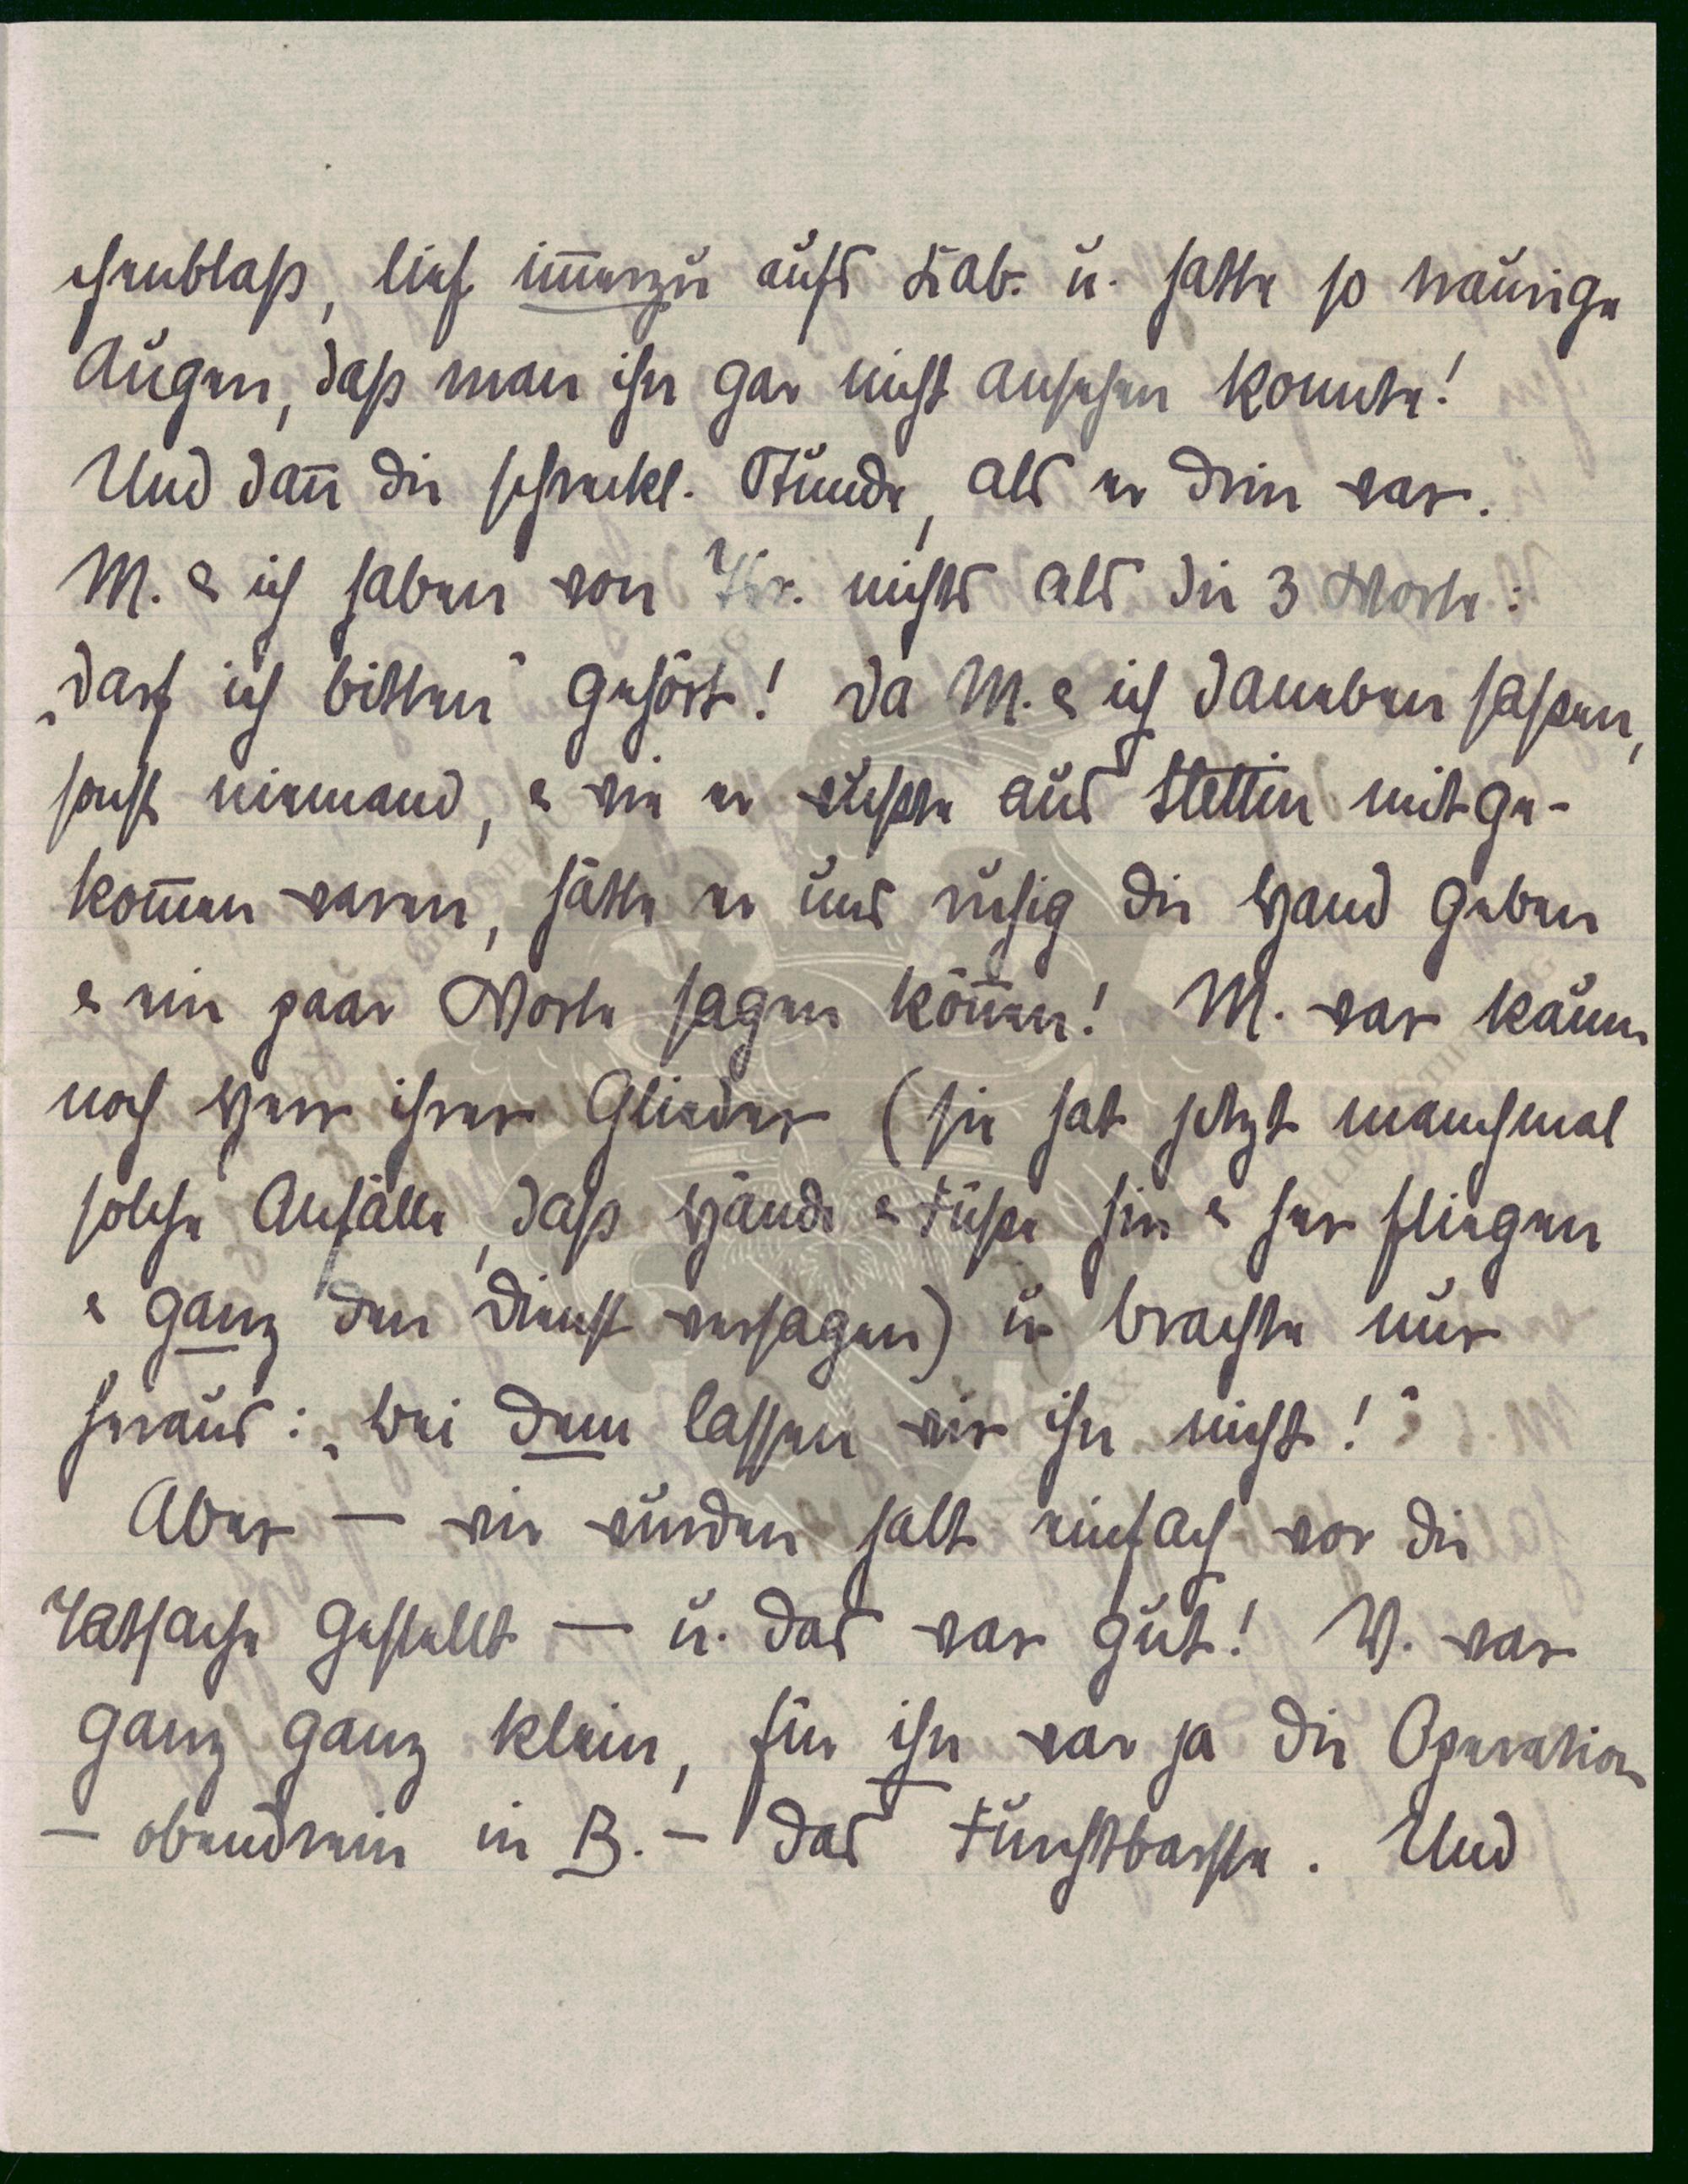 chenblass, lief im̅erzu aufs Kab. u. hatte so traurige
Augen, dass man ihn gar nicht ansehen konnte!
Und dan̅ die schreckl. Stunde, als er drin war.
M. & ich haben von Tr. nichts als die 3 Worte:
„darf ich bitten“ gehört! Da M. & ich daneben sassen,
sonst niemand, & wie er wusste aus Stettin mitge-
kom̅en waren, hätte er uns ruhig die Hand geben
& ein paar Worte sagen kön̅en! M. war kaum
noch Herr ihrer Glieder (sie hat jetzt manchmal
solche Anfälle, dass Hände & Füsse hin & her fliegen
& ganz den Dienst versagen) u. brachte nur
heraus: „bei dem lassen wir ihn nicht!“
Aber — wir wurden halt einfach vor die
Tatsache gestellt — u. das war gut! W. war
ganz ganz klein, für ihn war ja die Operation
— obendrein in B. — das Furchtbarste. Und